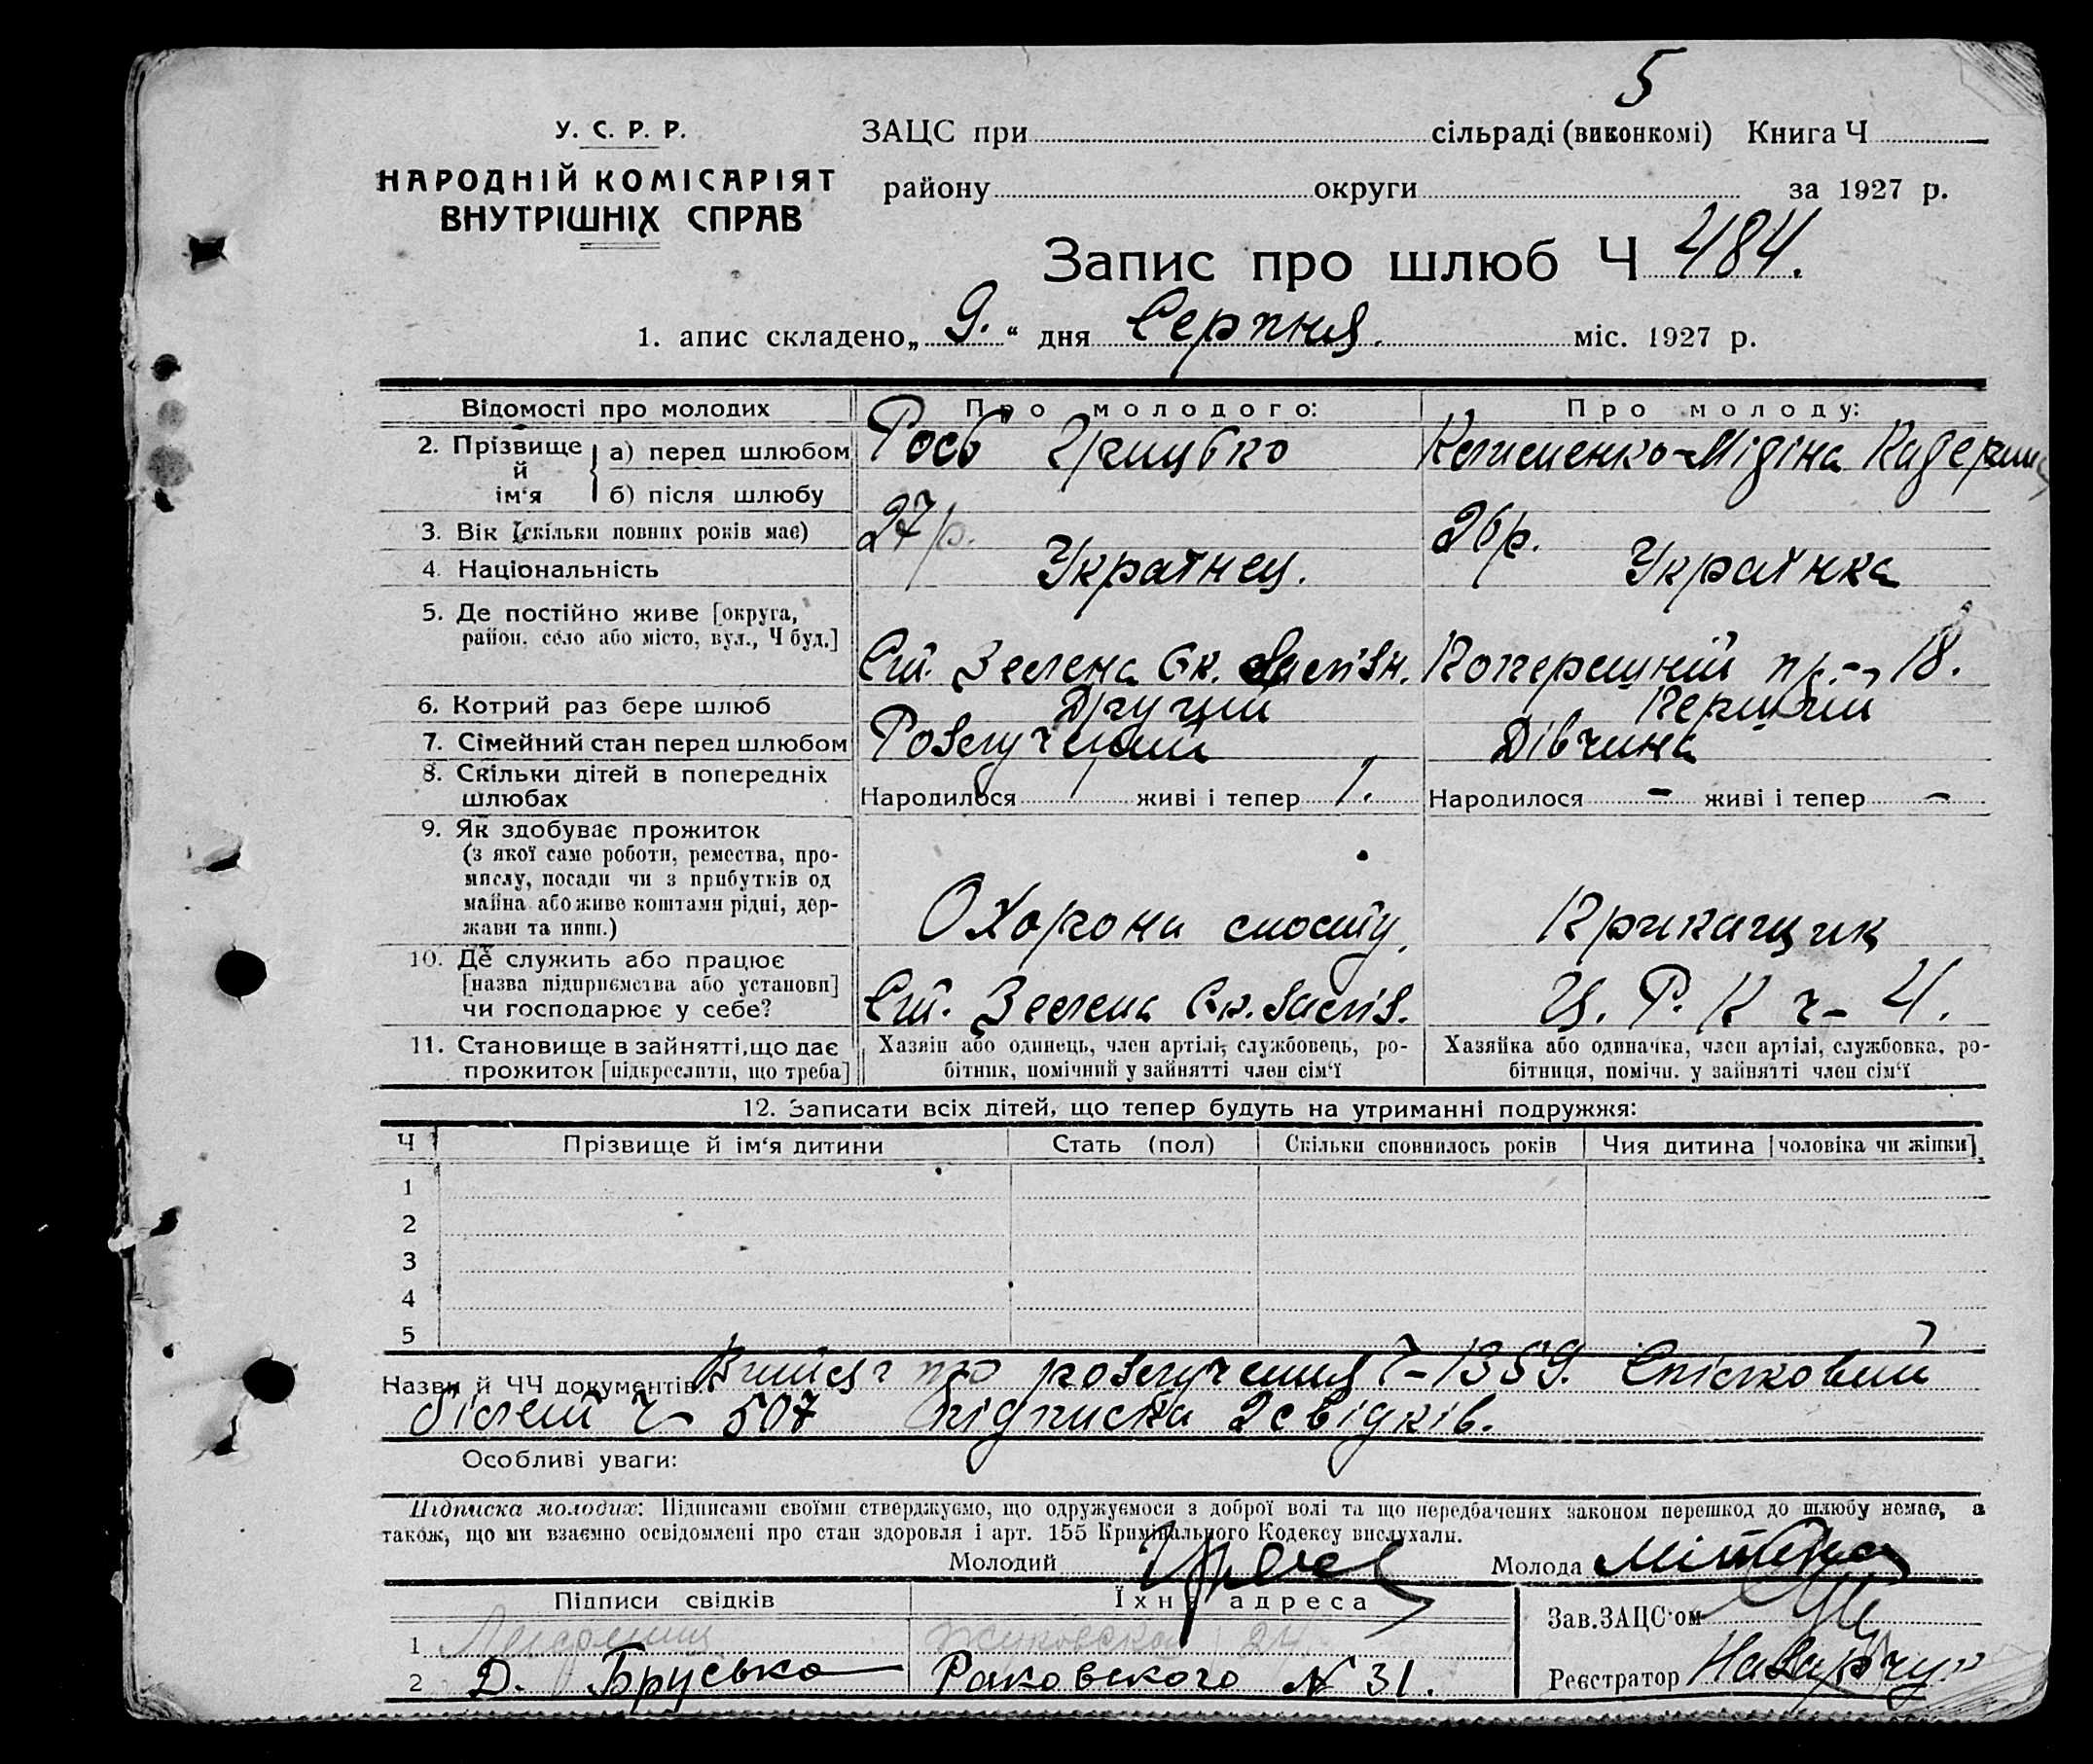 5
У. С. Р. Р.
НАРОДНІЙ КОМІСАРІЯТ
ВНУТРІШНІХ СПРАВ
ЗАЦС при сільраді (виконкомі) Книга Ч
району округи за 1927 р.
Запис про шлюб Ч 484.
1. апис складено „ 9. “ дня Серпня. міс. 1927 р.
Відомості про молодих Про молодого: Про молоду:
2. Прізвище й ім'я а) перед шлюбом Рось Грицько
б) після шлюбу
3. Вік [скільки повних років має) 27 р. 26 р.
4. Національність Українец. Українка
5. Де постійно живе [округа, район, село або місто, вул., Ч буд.] Ст. Зелена 18.
6. Котрий раз бере шлюб Другий Перший
7. Сімейний стан перед шлюбом Розлучений Дівчина
8. Скільки дітей в попередніх шлюбах Народилося 1 живі і тепер 1. Народилося - живі і тепер -
9. Як здобуває прожиток
(з якої саме роботи, ремества, про-
мислу, посади чи з прибутків од
майна або живе коштами рідні, дер-
жави та инш.) Охорона мосту, Прикащик
10. Де служить або працює
[назва підприємства або установи]
чи господарює у себе? Ст. Зелена Ц. Р. К ч- 4.
11. Становище в зайнятті, що дає
прожиток [підкреслити, що треба]
Хазяїн або одинець, член артілі, службовець, ро-
бітник, помічний у зайнятті член сім'ї
Хазяйка або одиначка, член артілі, службовка, ро-
бітниця, помічн. у зайнятті член сім'ї
12. Записати всіх дітей, що тепер будуть на утриманні подружжя:
Ч Прізвище й ім'я дитини Стать (пол) Скільки сповнилось років Чия дитина [чоловіка чи жінки]
1
2
3
4
5
Назви й ЧЧ документів: Витяг про розлучення ч-1359. Спілковий
білет ч- 507 Підписка 2 свідків.
Особливі уваги:
Підписка молодих: Підписами своїми стверджуємо, що одружуємося з доброї волі та що передбачених законом перешкод до шлюбу немає, а
також, що ми взаємно освідомлені про стан здоровля і арт. 155 Кримінального Кодексу вислухали.
Молодий Молода
Підписи свідків Їхня адреса
Зав. ЗАЦС'ом
1 Жуковська 24
2 Д. Бруська Раковского N 31.
Реєстратор